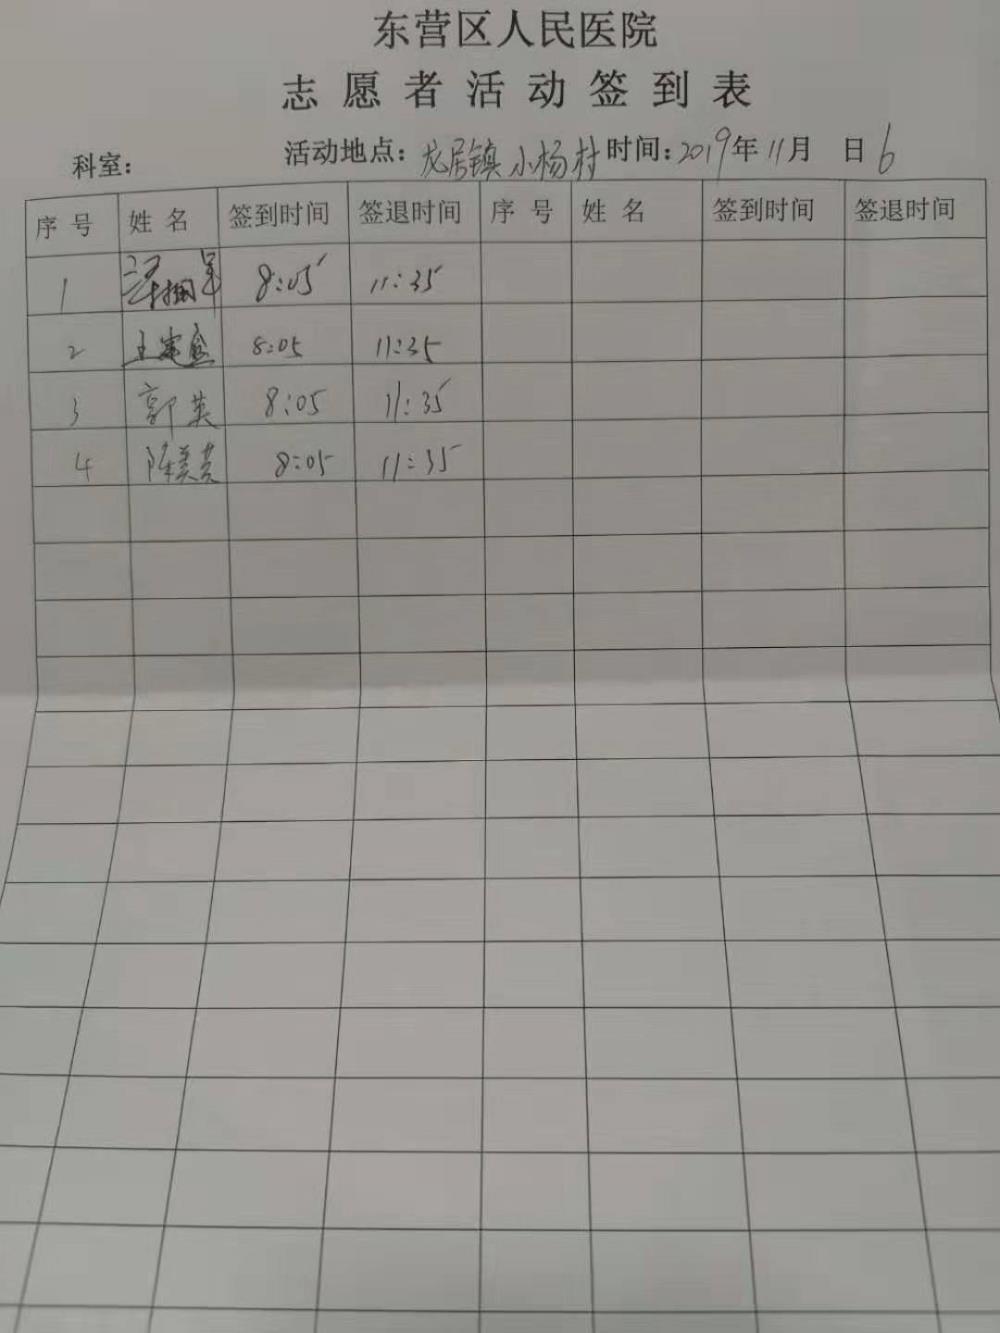 东营区人民医院
志愿者活动签到表
科室： 活动地点：龙居镇小杨村 时间：2019年11月 日6
序号 姓名 签到时间 签退时间 序号 姓名 签到时间 签退时间
1 8:05 11:35
2 8:05 11:35
3 郭英 8:05 11:35
4 陈美芸 8:05 11:35